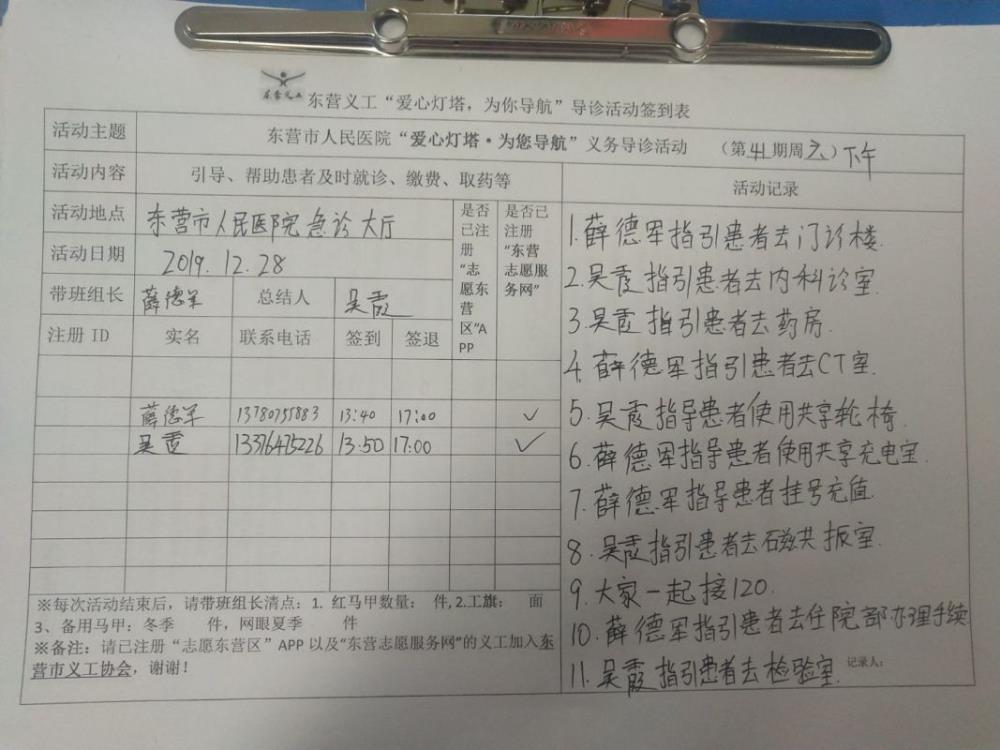 东营义工
东营义工“爱心灯塔，为你导航”导诊活动签到表
活动主题
东营市人民医院“爱心灯塔·为您导航”义务导诊活动 （第41期周六）下午
活动内容
引导、帮助患者及时就诊、缴费、取药等
活动地点
东营市人民医院急诊大厅
活动日期
2019.12.28
带班组长 薛德军 总结人 吴霞
是否已注册“志愿东营区”APP
是否已注册“东营志愿服务网”
注册 ID 实名 联系电话 签到 签退
薛德军 13780755883 13:40 17:00 ✓
吴霞 13376475226 13:50 17:00 ✓
※每次活动结束后，请带班组长清点：1. 红马甲数量： 件, 2.工旗： 面
3、备用马甲：冬季 件，网眼夏季 件
※备注：请已注册“志愿东营区”APP 以及“东营志愿服务网”的义工加入东
营市义工协会，谢谢！
活动记录
1.薛德军指引患者去门诊楼.
2.吴霞指引患者去内科诊室.
3.吴霞指引患者去药房.
4.薛德军指引患者去CT室.
5.吴霞指导患者使用共享轮椅.
6.薛德军指导患者使用共享充电宝.
7.薛德军指导患者挂号充值.
8.吴霞指引患者去磁共振室.
9.大家一起接120.
10.薛德军指引患者去住院部办理手续
11.吴霞指引患者去检验室.
记录人：